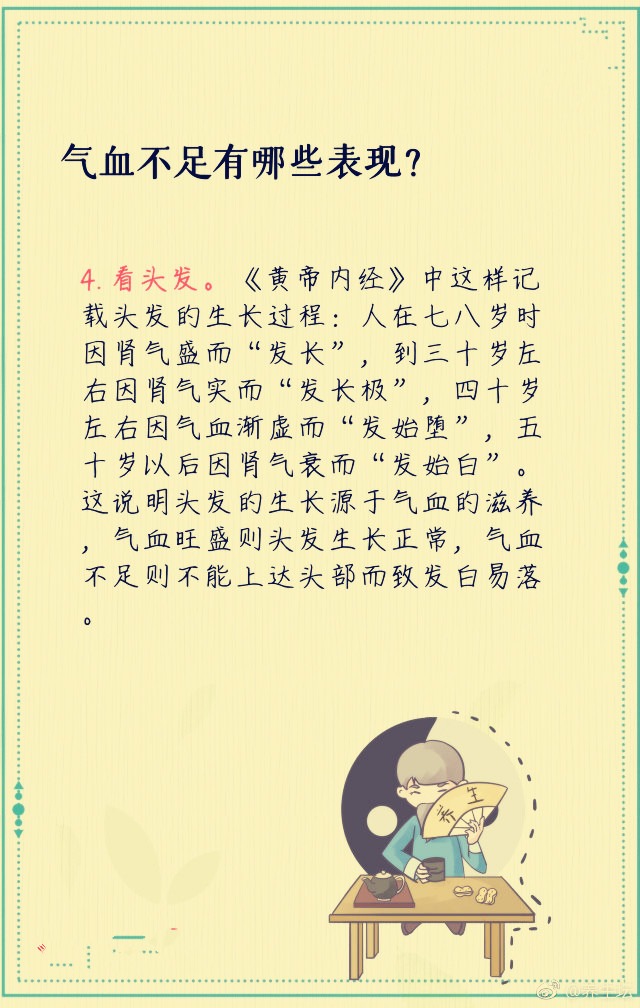 气血不足有哪些表现？
4. 看头发。《黄帝内经》中这样记
载头发的生长过程：人在七八岁时
因肾气盛而“发长”，到三十岁左
右因肾气实而“发长极”，四十岁
左右因气血渐虚而“发始堕”，五
十岁以后因肾气衰而“发始白”。
这说明头发的生长源于气血的滋养
，气血旺盛则头发生长正常，气血
不足则不能上达头部而致发白易落
。
养生